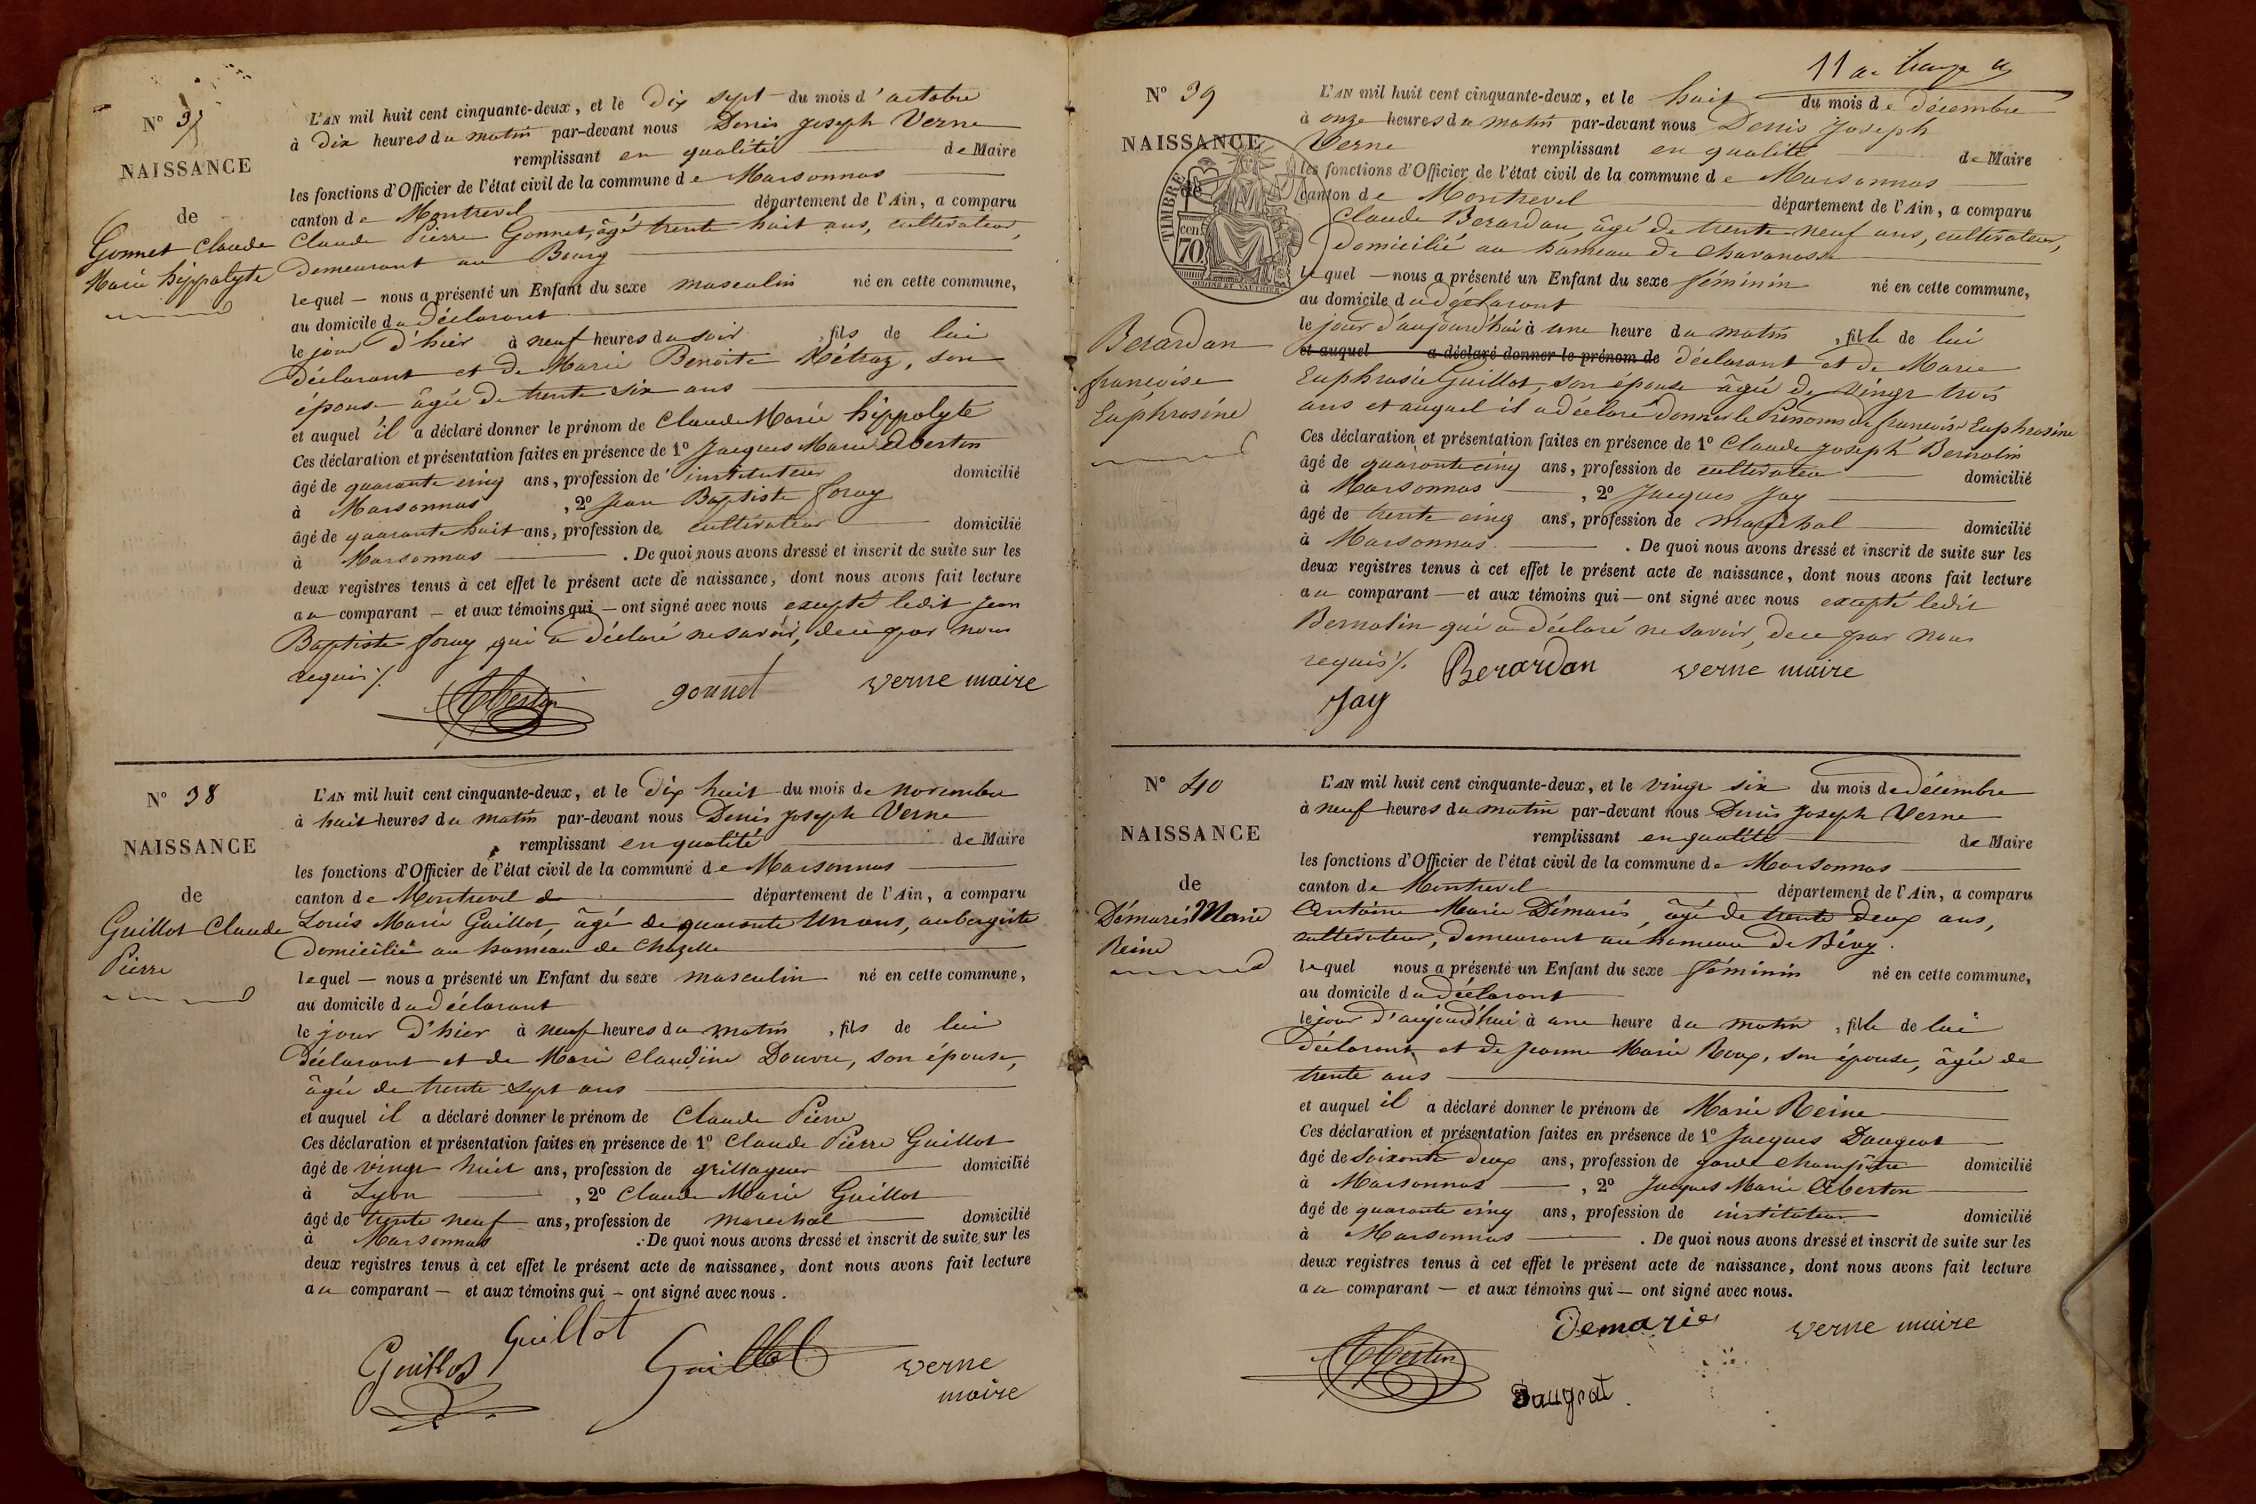 N° 37
NAISSANCE
de
Gonnet Claude
Marie hippolyte
L'AN mil huit cent cinquante-deux, et le dix sept du mois d'octobre
à dix heures du matin par-devant nous Denis Joseph Verne
remplissant en qualité de Maire
les fonctions d'Officier de l'état civil de la commune de Marsonnas
canton de Montrevel département de l'Ain, a comparu
Claude Pierre Gonnet, âgé trente huit ans, cultivateur,
demeurant au Bourg
lequel — nous a présenté un Enfant du sexe masculin né en cette commune,
au domicile du déclarant
le jour d'hier à neuf heures du soir, fils de lui
déclarant et de Marie Benoite Métraz, son
épouse âgée de trente six ans
et auquel il a déclaré donner le prénom de Claude Marie hippolyte
Ces déclaration et présentation faites en présence de 1° Jacques Marie Aberton
âgé de quarante cinq ans, profession de instituteur domicilié
à Marsonnas, 2° Jean Baptiste foray
âgé de quarante huit ans, profession de cultivateur domicilié
à Marsonnas. De quoi nous avons dressé et inscrit de suite sur les
deux registres tenus à cet effet le présent acte de naissance, dont nous avons fait lecture
au comparant — et aux témoins qui — ont signé avec nous excepté ledit Jean
Baptiste foray qui a déclaré ne savoir, de ce par nous
requis ./.
Aberton gonnet verne maire
N° 38
NAISSANCE
de
Guillot Claude
Pierre
L'AN mil huit cent cinquante-deux, et le dix huit du mois de novembre
à huit heures du matin par-devant nous Denis Joseph Verne
remplissant en qualité de Maire
les fonctions d'Officier de l'état civil de la commune de Marsonnas
canton de Montrevel département de l'Ain, a comparu
Louis Marie Guillot, âgé de quarante un ans, aubergiste
domicilié au hameau de Chazelle
lequel — nous a présenté un Enfant du sexe masculin né en cette commune,
au domicile du déclarant
le jour d'hier à neuf heures du matin, fils de lui
déclarant et de Marie Claudine Douvre, son épouse,
âgée de trente sept ans
et auquel il a déclaré donner le prénom de Claude Pierre
Ces déclaration et présentation faites en présence de 1° Claude Pierre Guillot
âgé de vingt huit ans, profession de grillageur domicilié
à Lyon, 2° Claude Marie Guillot
âgé de trente neuf ans, profession de marechal domicilié
à Marsonnas. De quoi nous avons dressé et inscrit de suite sur les
deux registres tenus à cet effet le présent acte de naissance, dont nous avons fait lecture
au comparant — et aux témoins qui — ont signé avec nous.
Guillot Guillot Guillot verne
maire
11
N° 39
NAISSANCE
de
TIMBRE
70 cen
Berardan
françoise
Euphrosine
L'AN mil huit cent cinquante-deux, et le huit du mois de décembre
à onze heures du matin par-devant nous Denis Joseph
Verne remplissant en qualité de Maire
les fonctions d'Officier de l'état civil de la commune de Marsonnas
canton de Montrevel département de l'Ain, a comparu
Claude Berardan, âgé de trente neuf ans, cultivateur,
domicilié au hameau de Chavanosse
lequel — nous a présenté un Enfant du sexe féminin né en cette commune,
au domicile du déclarant
le jour d'aujourd'hui à une heure du matin, fille de lui
et auquel a déclaré donner le prénom de déclarant et de Marie
Euphrasie Guillot, son épouse âgée de vingt trois
ans et auquel il a déclaré donner le Prénoms de françoise Euphrosine
Ces déclaration et présentation faites en présence de 1° Claude Joseph Bernolin
âgé de quarante cinq ans, profession de cultivateur domicilié
à Marsonnas, 2° Jacques Jay
âgé de trente cinq ans, profession de maréchal domicilié
à Marsonnas. De quoi nous avons dressé et inscrit de suite sur les
deux registres tenus à cet effet le présent acte de naissance, dont nous avons fait lecture
au comparant — et aux témoins qui — ont signé avec nous excepté ledit
Bernolin qui a déclaré ne savoir, de ce par nous
requis ./. Berardan verne maire
Jay
N° 40
NAISSANCE
de
Démaris Marie
Reine
L'AN mil huit cent cinquante-deux, et le vingt six du mois de décembre
à neuf heures du matin par-devant nous Denis Joseph Verne
remplissant en qualité de Maire
les fonctions d'Officier de l'état civil de la commune de Marsonnas
canton de Montrevel département de l'Ain, a comparu
Antoine Marie Démaris, âgé de trente deux ans,
cultivateur, demeurant au hameau de Bévy.
lequel nous a présenté un Enfant du sexe féminin né en cette commune,
au domicile du déclarant
le jour d'aujourd'hui à une heure du matin, fille de lui
déclarant et de Jeanne Marie Roux, son épouse, âgée de
trente ans
et auquel il a déclaré donner le prénom de Marie Reine
Ces déclaration et présentation faites en présence de 1° Jacques Daugeat
âgé de soixante deux ans, profession de garde champêtre domicilié
à Marsonnas, 2° Jacques Marie Aberton
âgé de quarante cinq ans, profession de instituteur domicilié
à Marsonnas. De quoi nous avons dressé et inscrit de suite sur les
deux registres tenus à cet effet le présent acte de naissance, dont nous avons fait lecture
au comparant — et aux témoins qui — ont signé avec nous.
Demaris verne maire
Aberton
Daugeat.